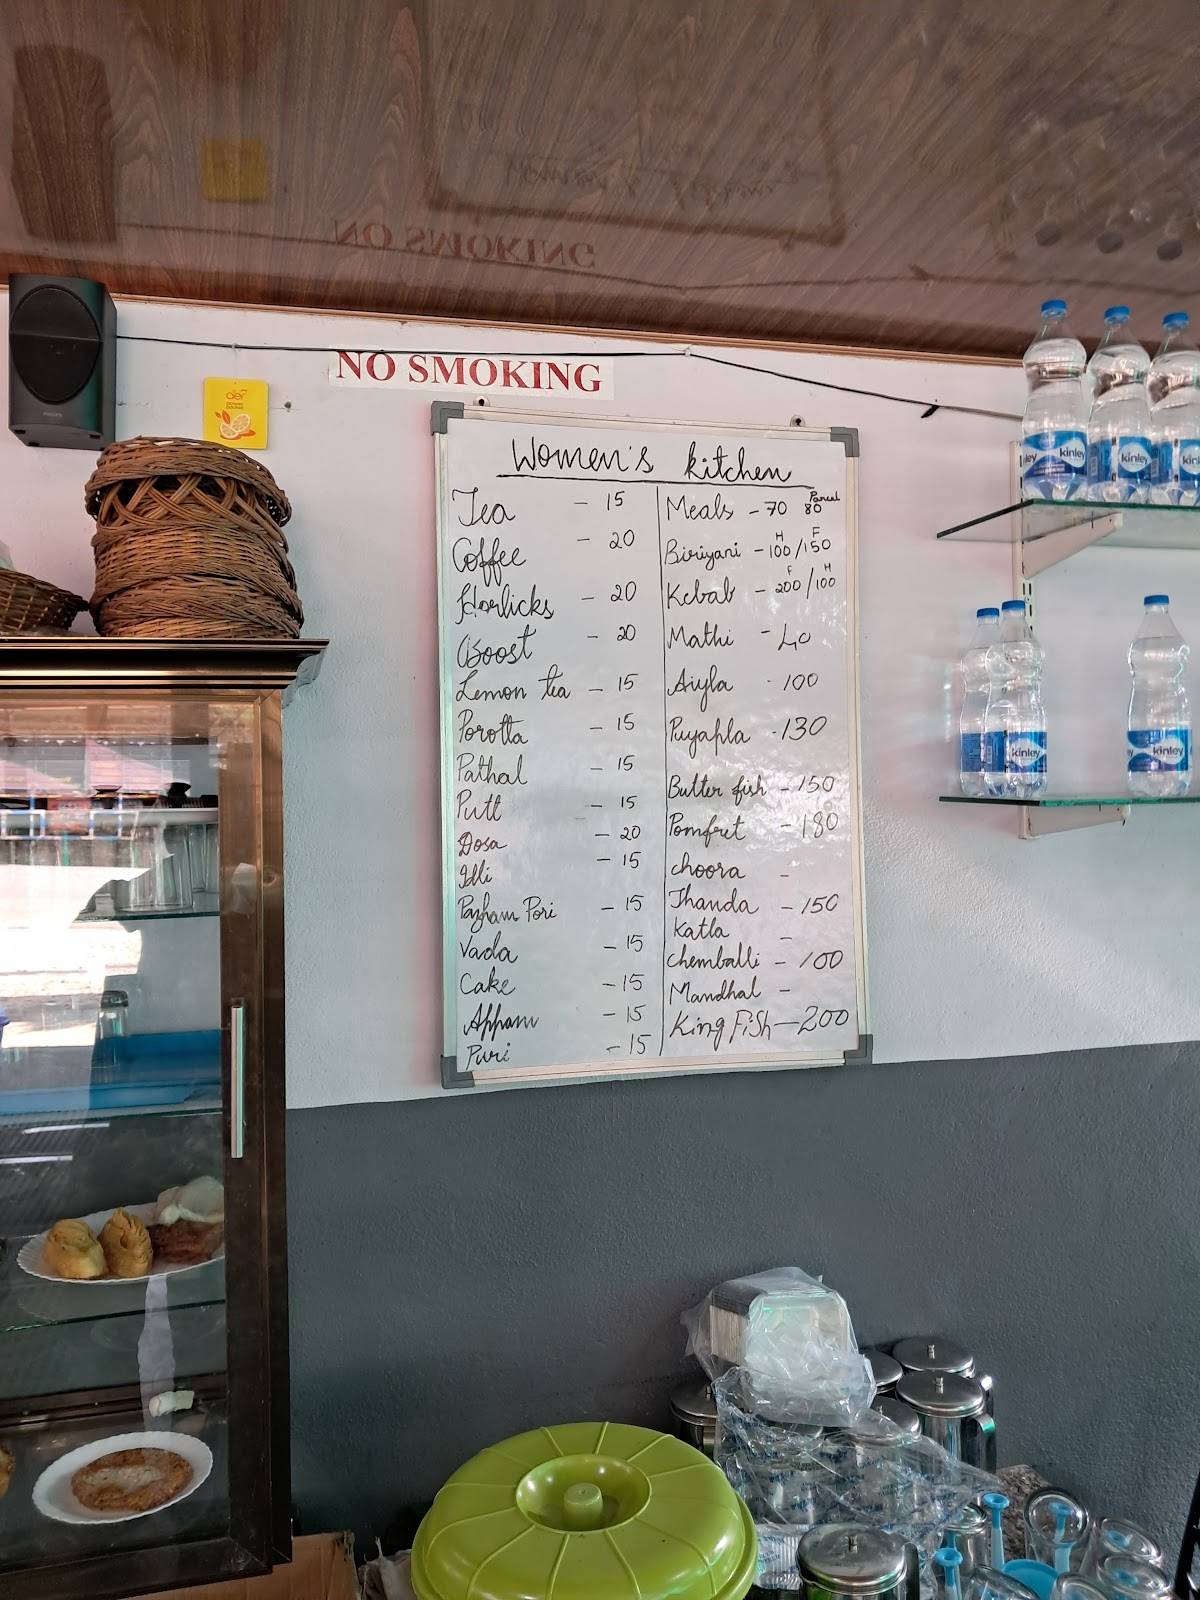 NO SMOKING
aer
Women's kitchen
Tea - 15
Coffee - 20
Horlicks - 20
Boost - 20
Lemon tea - 15
Porotta - 15
Pathal - 15
Putt - 15
Dosa - 20
Idli - 15
Pazham Pori - 15
Vada - 15
Cake - 15
Appam - 15
Puri - 15
Parcel
Meals - 70 80
H F
Biriyani - 100/150
F H
Kebab - 200/100
Mathi - 40
Aiyla - 100
Puyapla - 130
Butter fish - 150
Pomfret - 180
choora -
Thanda - 150
Katla -
chemballi - 100
Mandhal -
King Fish - 200
kinley
kinley
kinley
kinley
kinley